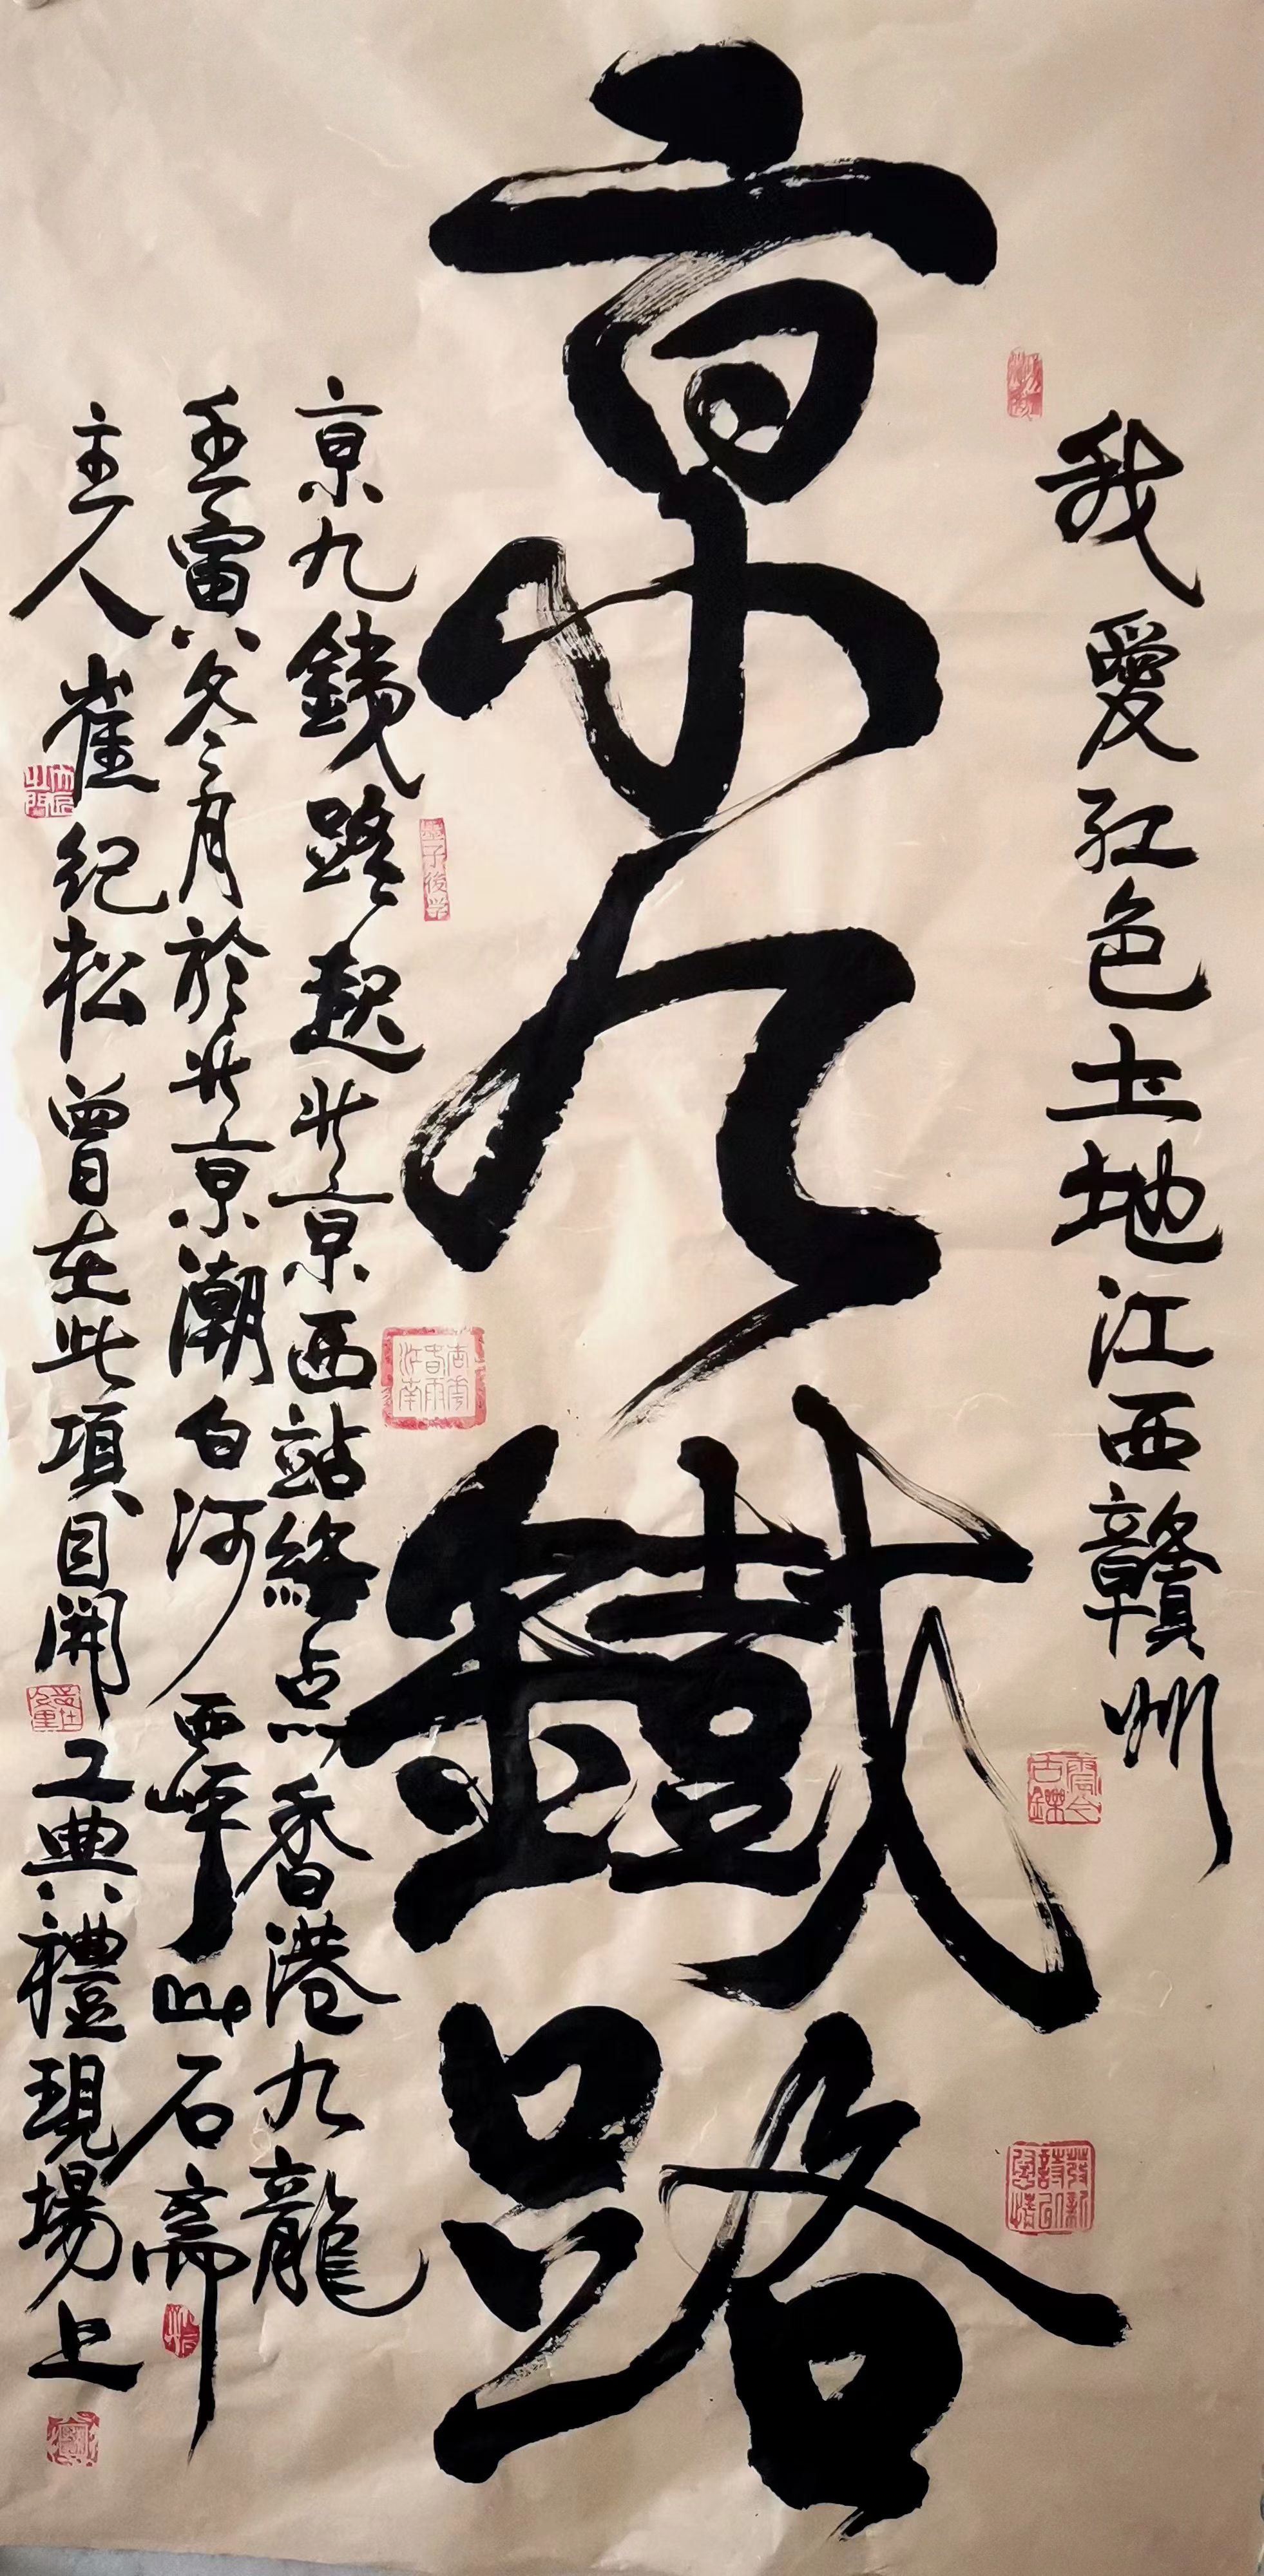 我愛紅色土地江西贛州
京九鐵路
京九鐵路起北京西站終点香港九龍
壬寅冬月於北京潮白河西岸卧石齋
主人崔纪松曾在此項目開工典禮現場上